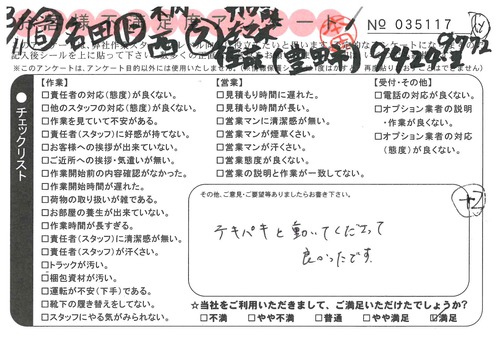 お客様満足度アンケート
№ 035117
記入後シールを上に貼って下さい
※このアンケートは、アンケート目的以外には使用いたしません。
チェックリスト
【作業】
□責任者の対応(態度)が良くない。
□他のスタッフの対応(態度)が良くない。
□作業を見ていて不安がある。
□責任者(スタッフ)に好感が持てない。
□お客様への挨拶が出来ていない。
□ご近所への挨拶・気遣いが無い。
□作業開始前の内容確認がなかった。
□作業開始時間が遅れた。
□荷物の取り扱いが雑である。
□お部屋の養生が出来ていない。
□作業時間が長すぎる。
□責任者(スタッフ)に清潔感が無い。
□責任者(スタッフ)が汗くさい。
□トラックが汚い。
□梱包資材が汚い。
□運転が不安(下手)である。
□靴下の履き替えをしてない。
□スタッフにやる気がみられない。
【営業】
□見積もり時間に遅れた。
□見積もり時間が長い。
□営業マンに清潔感が無い。
□営業マンが煙草くさい。
□営業マンが汗くさい。
□営業態度が良くない。
□営業の説明と作業が一致してない。
【受付・その他】
□電話の対応が良くない。
□オプション業者の説明
・作業が良くない。
□オプション業者の対応
(態度)が良くない。
その他、ご意見・ご要望等ありましたらお書き下さい。
テキパキと動いてくださって
良かったです。
+2
☆当社をご利用いただきまして、ご満足いただけたでしょうか?
□不満 □やや不満 □普通 □やや満足 ☑満足